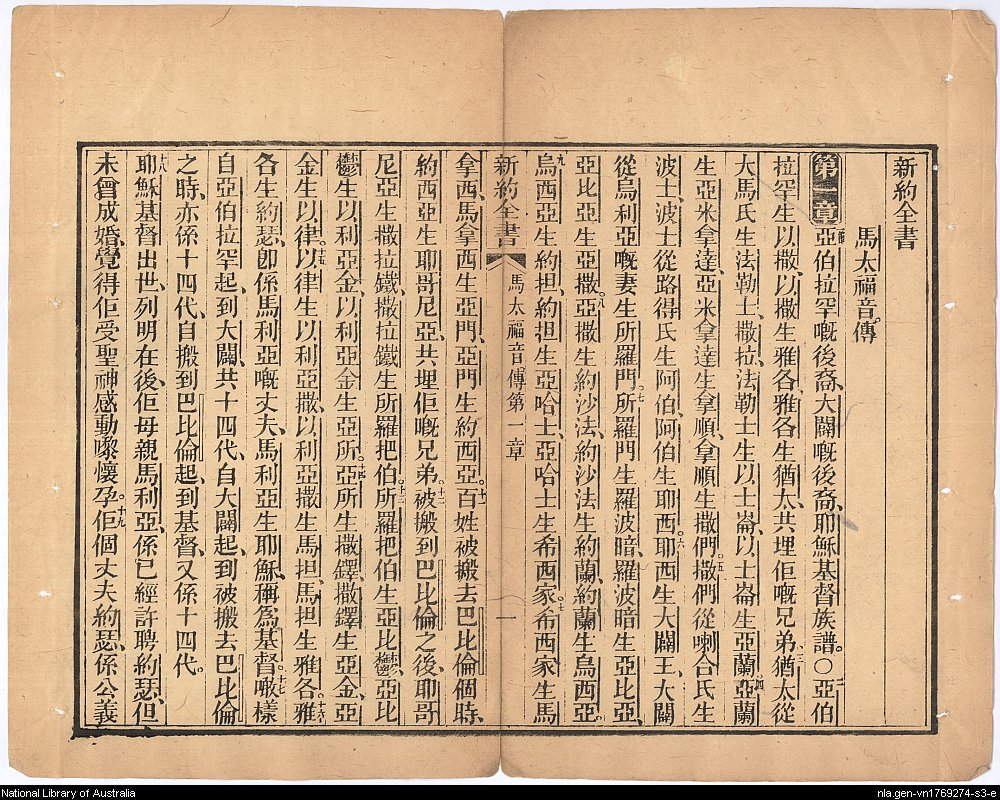 新約全書
馬太福音傳
第一章 亞伯拉罕嘅後裔、大闢嘅後裔、耶穌基督族譜。〇二亞伯
拉罕生以撒、以撒生雅各、雅各生猶太共埋佢嘅兄弟、三猶太從
大馬氏生法勒士、撒拉、法勒士生以士崙、以士崙生亞蘭、四亞蘭
生亞米拿達、亞米拿達生拿順、拿順生撒們。五撒們從喇合氏生
波士、波士從路得氏生阿伯、阿伯生耶西。六耶西生大闢王、大闢
從烏利亞嘅妻生所羅門。七所羅門生羅波暗、羅波暗生亞比亞、
亞比亞生亞撒、八亞撒生約沙法、約沙法生約蘭、約蘭生烏西亞。
九烏西亞生約担、約担生亞哈士、亞哈士生希西家。十希西家生馬
新約全書 馬太福音傳第一章 一
拿西、馬拿西生亞門、亞門生約西亞。十一百姓被搬去巴比倫個時、
約西亞生耶哥尼亞、共埋佢嘅兄弟。十二被搬到巴比倫之後、耶哥
尼亞生撒拉鐵、撒拉鐵生所羅把伯。十三所羅把伯生亞比鬱、亞比
鬱生以利亞金、以利亞金生亞所。十四亞所生撒鐸、撒鐸生亞金、亞
金生以律。十五以律生以利亞撒、以利亞撒生馬担、馬担生雅各。十六雅
各生約瑟、卽係馬利亞嘅丈夫、馬利亞生耶穌、稱爲基督。十七噉樣
自亞伯拉罕起、到大闢、共十四代、自大闢起、到被搬去巴比倫
之時、亦係十四代、自搬到巴比倫起、到基督、又係十四代。
十八耶穌基督出世、列明在後、佢母親馬利亞、係已經許聘約瑟、但
未曾成婚、覺得佢受聖神感動嚟懷孕。十九佢個丈夫約瑟、係公義
National Library of Australia
nla.gen-vn1769274-s3-e